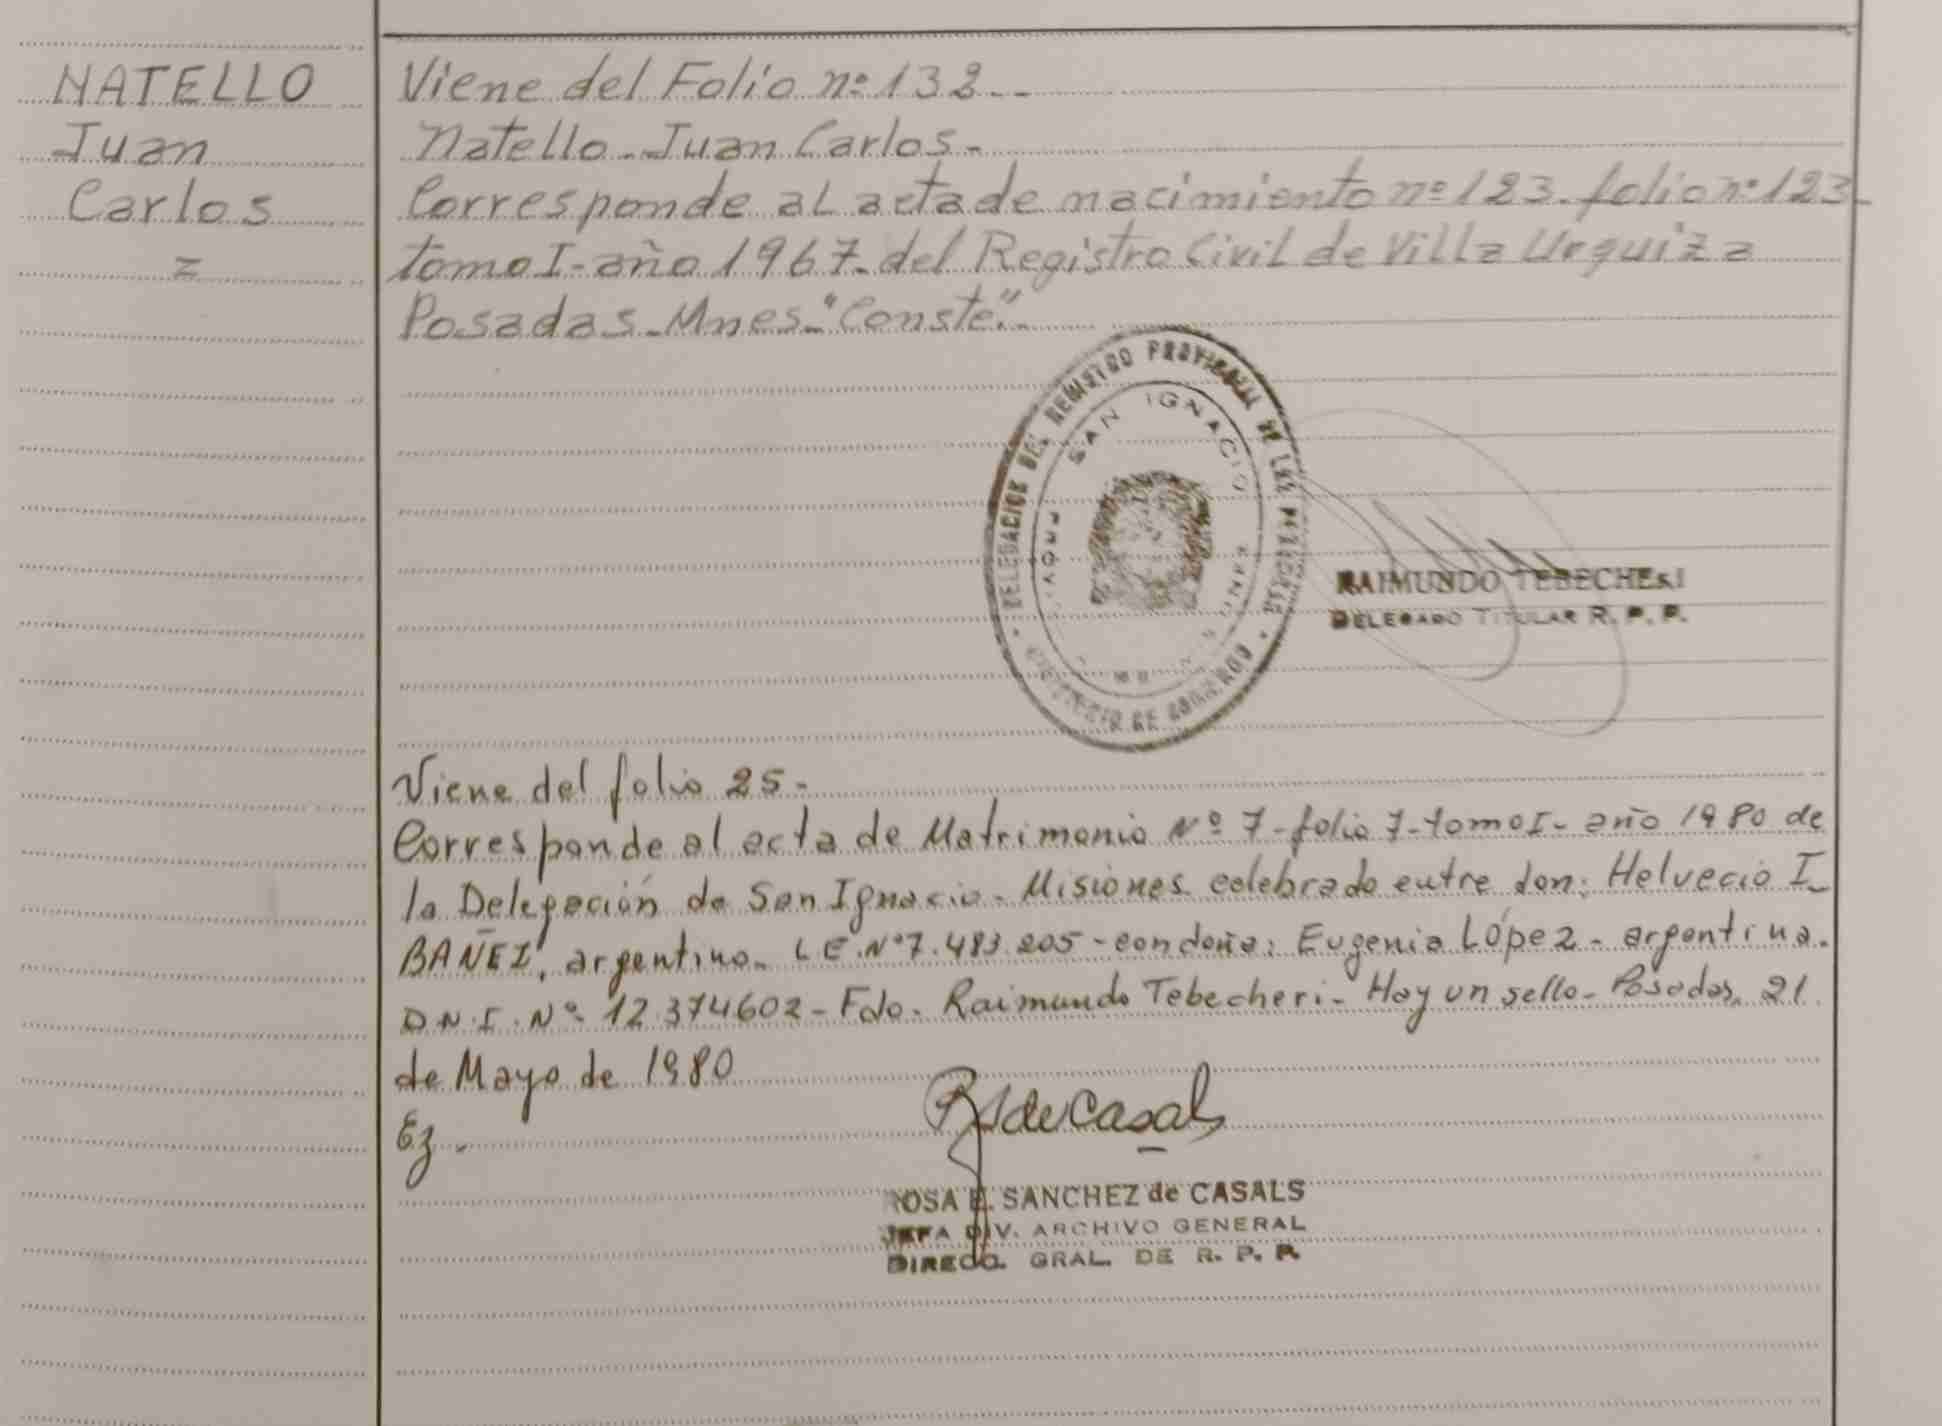 NATELLO
Juan
Carlos
=
Viene del Folio nº 132--
Natello-Juan Carlos-
Corresponde al acta de nacimiento nº 123-folio nº 123-
tomo I-año 1967-del Registro Civil de Villa Urquiza
Posadas-Mnes-"Conste"-
DELEGACION DEL REGISTRO PROVINCIAL DE LAS PERSONAS
MINISTERIO DE GOBIERNO
SAN IGNACIO
RAIMUNDO TEBECHERI
DELEGADO TITULAR R. P. P.
Viene del folio 25-
Corresponde al acta de Matrimonio Nº 7-folio 7-tomo I-año 1980 de
la Delegación de San Ignacio-Misiones celebrado entre don: Helvecio I-
BAÑEZ, argentino- L E.Nº 7.483.205-con doña: Eugenia López-argentina.
D.N.I.Nº 12.374602-Fdo. Raimundo Tebecheri-Hay un sello-Posadas, 21
de Mayo de 1980
Ez-
RSdeCasals
ROSA E. SANCHEZ de CASALS
JEFA DIV. ARCHIVO GENERAL
DIRECC. GRAL. DE R. P. P.